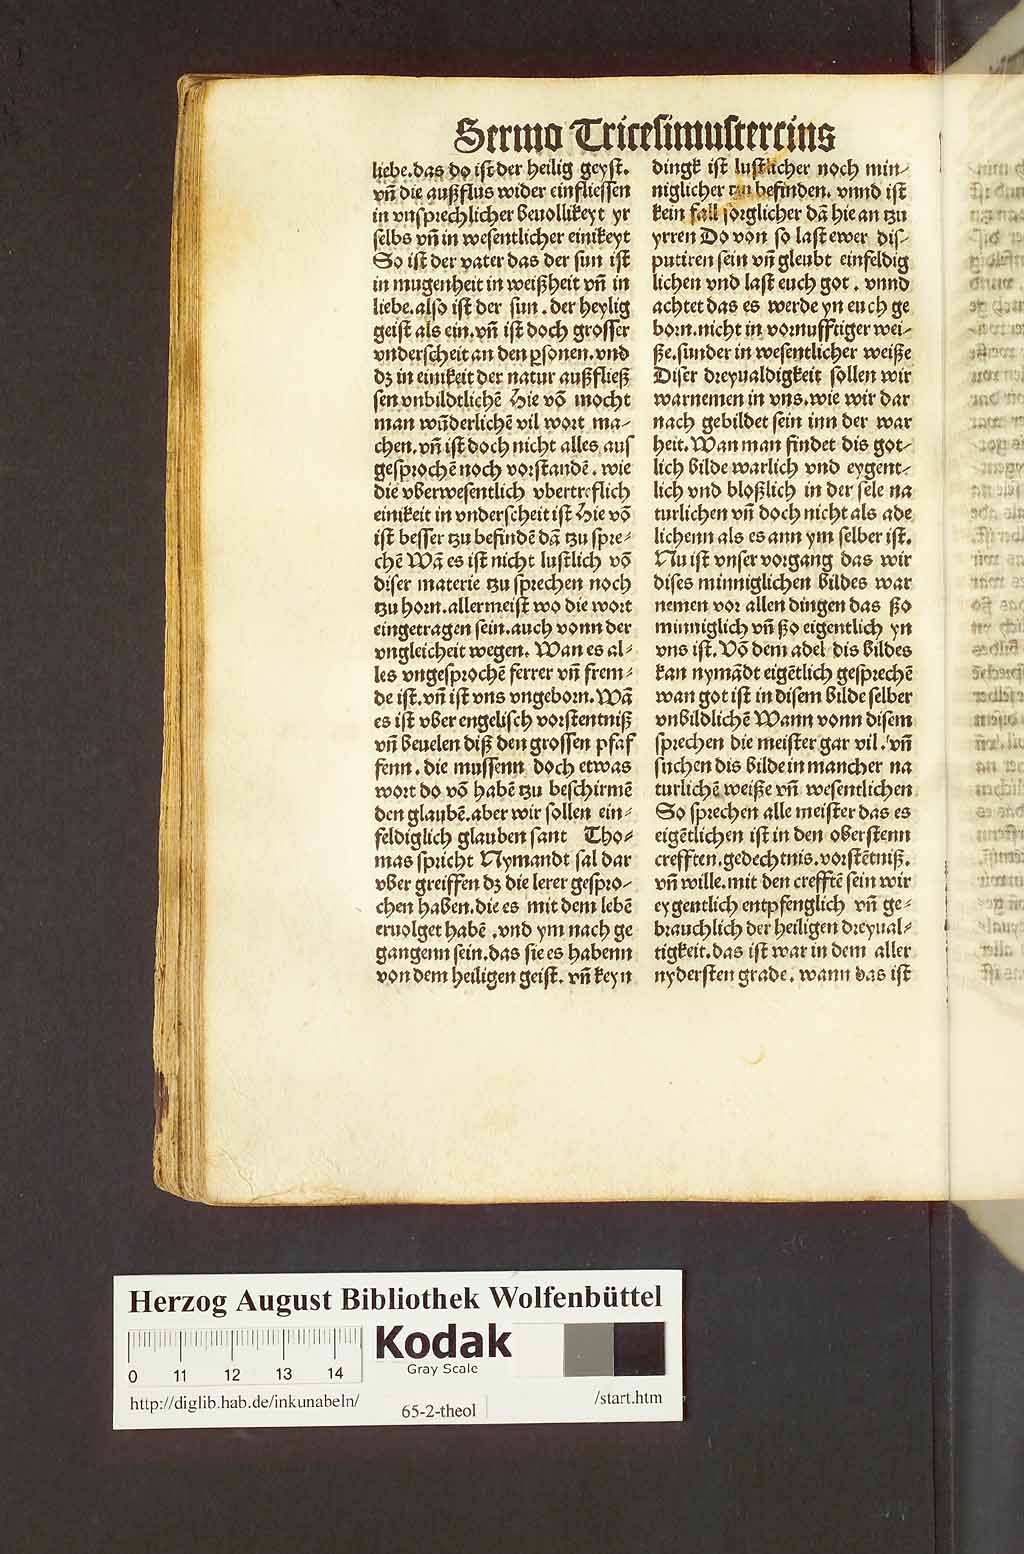 Sermo Tricesimustercius
liebe.das do ist der heilig geyst.
vn̄ die außflus wider einfliessen
in vnsprechlicher beuollikeyt yr
selbs vn̄ in wesentlicher einikeyt
So ist der vater das der sun ist
in mugenheit in weißheit vn̄ in
liebe.also ist der sun. der heylig
geist als ein.vn̄ ist doch grosser
vnderscheit an den ꝑsonen.vnd
dz in einikeit der natur außfließ
sen vnbildtlichē Hie vō mocht
man wūderlichē vil wort ma⸗
chen.vn̄ ist doch nicht alles aus
gesprochē noch vorstandē. wie
die vberwesentlich vbertreflich
einikeit in vnderscheit ist Hie vō
ist besser tzu befindē dā tzu spre⸗
chē Wā es ist nicht lustlich vō
diser materie tzu sprechen noch
tzu horn.allermeist wo die wort
eingetragen sein.auch vonn der
vngleicheit wegen. Wan es al⸗
les vngesprochē ferrer vn̄ frem⸗
de ist.vn̄ ist vns vngeborn.Wā
es ist vber engelisch vorstentniß
vn̄ beuelen diß den grossen pfaf
fenn. die mussenn doch etwas
wort do vō habē tzu beschirmē
den glaubē.aber wir sollen ein⸗
feldiglich glauben sant Tho⸗
mas spricht Nymandt sal dar
vber greiffen dz die lerer gespro⸗
chen haben.die es mit dem lebē
eruolget habē .vnd ym nach ge
gangenn sein.das sie es habenn
von dem heiligen geist. vn̄ keyn
dingk ist lustlicher noch min⸗
niglicher tzu befinden. vnnd ist
kein fall sorglicher dā hie an tzu
yrren Do von so last ewer dis⸗
putiren sein vn̄ gleubt einfeldig
lichen vnd last euch got . vnnd
achtet das es werde yn euch ge
born.nicht in vornufftiger wei⸗
ße.sunder in wesentlicher weiße
Diser dreyualdigkeit sollen wir
warnemen in vns.wie wir dar
nach gebildet sein inn der war
heit.Wan man findet dis got⸗
lich bilde warlich vnd eygent⸗
lich vnd bloßlich in der sele na
turlichen vn̄ doch nicht als ade
lichenn als es ann ym selber ist.
Nu ist vnser vorgang das wir
dises minniglichen bildes war
nemen vor allen dingen das ßo
minniglich vn̄ ßo eigentlich yn
vns ist. Vō dem adel dis bildes
kan nymādt eigētlich gesprechē
wan got ist in disem bilde selber
vnbildlichē Wann vonn disem
sprechen die meister gar vil. vn̄
suchen dis bilde in mancher na
turlichē weiße vn̄ wesentlichen
So sprechen alle meister das es
eigētlichen ist in den oberstenn
crefften.gedechtnis.vorstētniß.
vn̄ wille.mit den crefftē sein wir
eygentlich entpfenglich vn̄ ge⸗
brauchlich der heiligen dreyual⸗
tigkeit.das ist war in dem aller
nydersten grade. wann das ist
Herzog August Bibliothek Wolfenbüttel
0 11 12 13 14
Kodak
Gray Scale
http://diglib.hab.de/inkunabeln/
65-2-theol
/start.htm